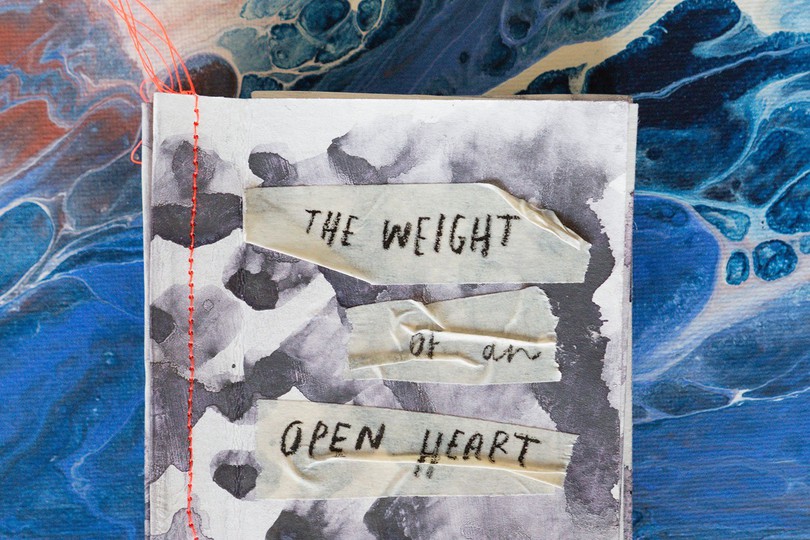 THE WEIGHT
of an
OPEN HEART